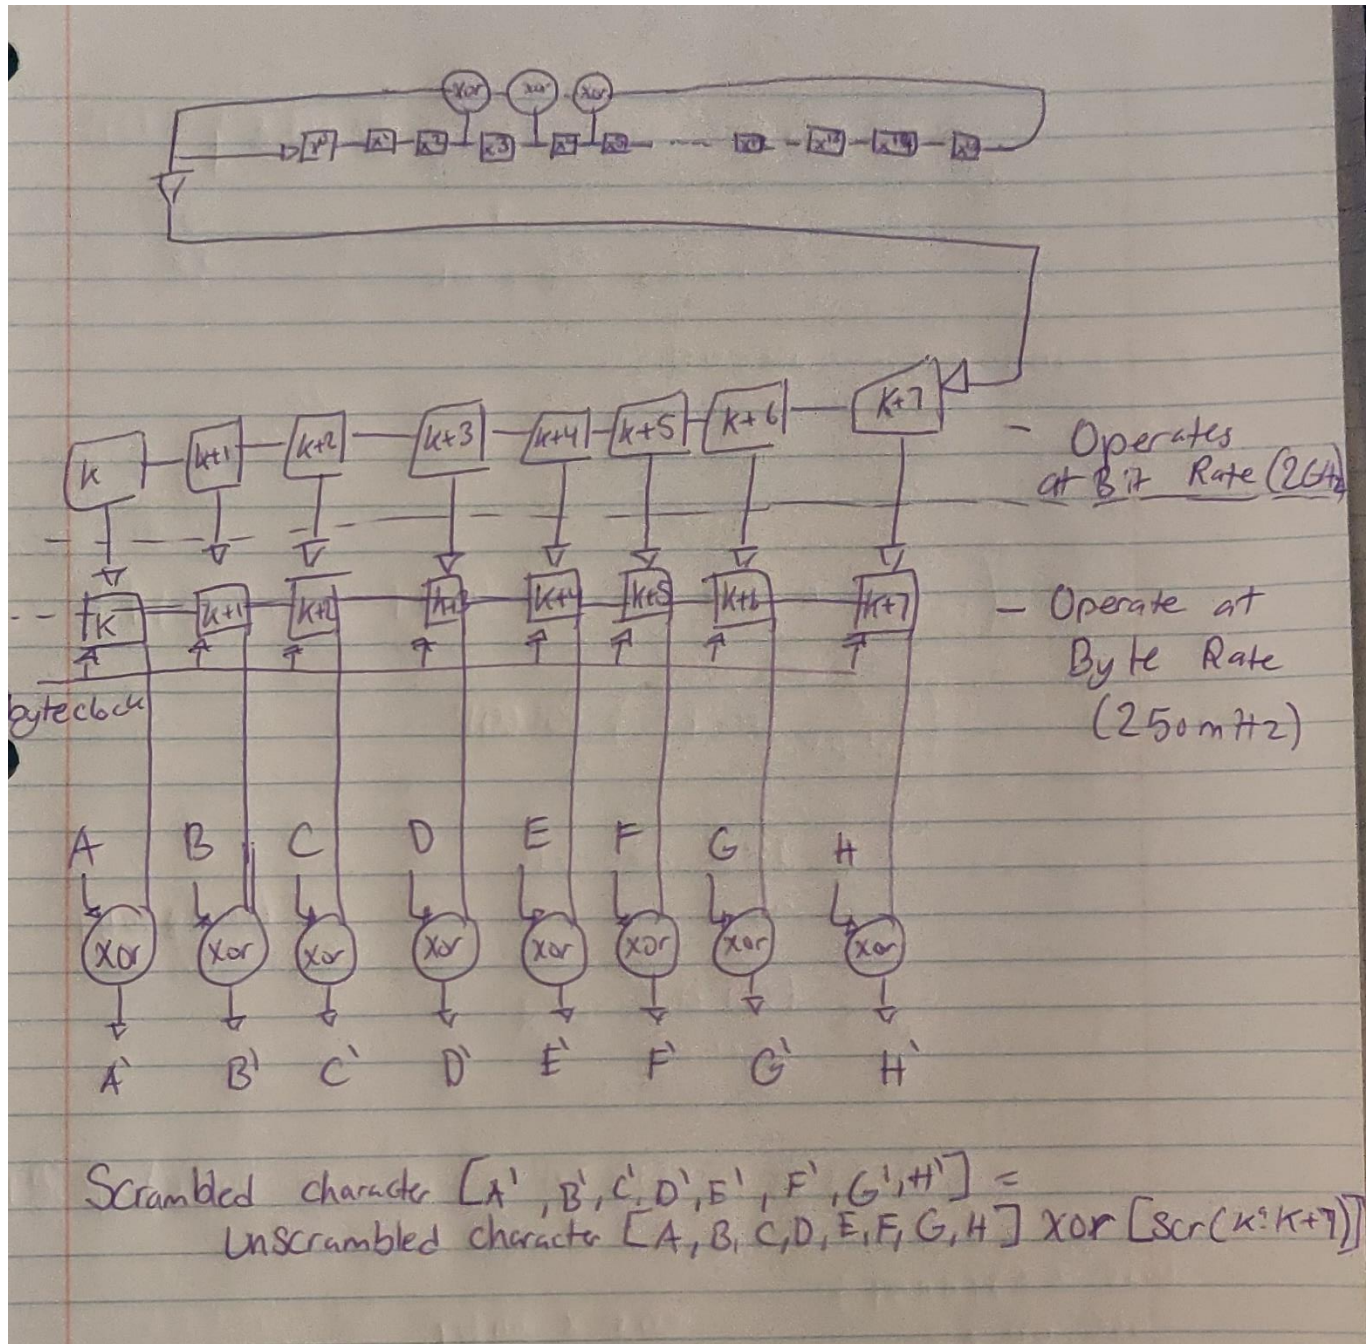 xor xor xor
x⁰ x¹ x² x³ x⁴ x⁵
k k+1 k+2 k+3 k+4 k+5 k+6 k+7
- Operates
at Bit Rate (2GHz)
k k+1 k+2 k+3 k+4 k+5 k+6 k+7
- Operate at
Byte Rate
(250mHz)
byteclock
A B C D E F G H
xor xor xor xor xor xor xor xor
A' B' C' D' E' F' G' H'
Scrambled character [A', B', C', D', E', F', G', H'] =
Unscrambled character [A, B, C, D, E, F, G, H] xor [scr(k:k+7)]